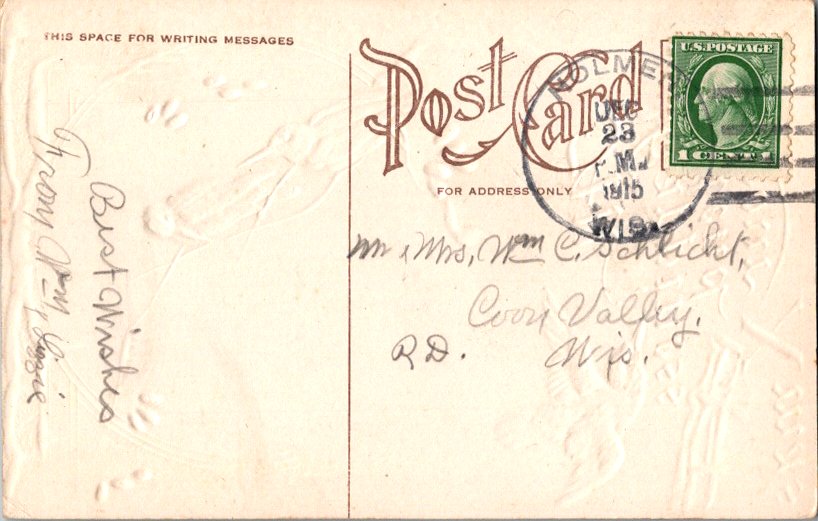 THIS SPACE FOR WRITING MESSAGES
Best Wishes
From Wm & Lizzie
Post Card
FOR ADDRESS ONLY
HOLMEN
DEC
23
P.M.
1915
WIS.
U.S. POSTAGE
1 CENT 1
Mr & Mrs, Wm C. Schlicht,
Coon Valley,
R D. Wis.